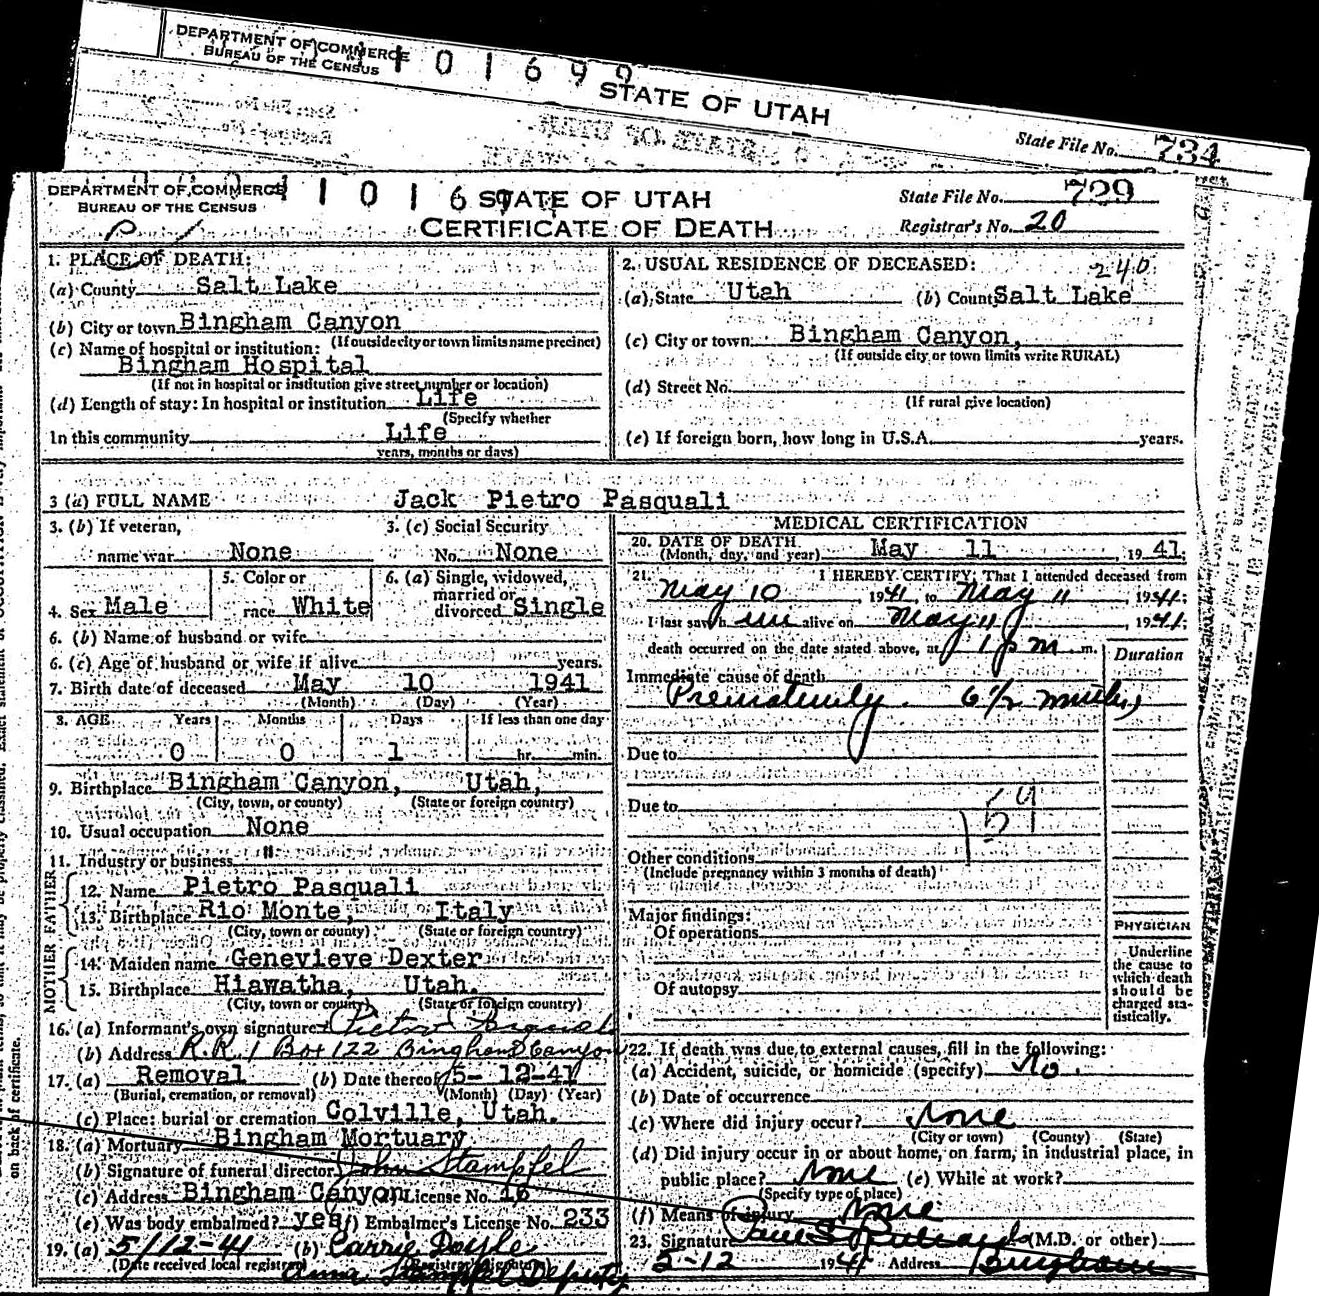 DEPARTMENT OF COMMERCE
BUREAU OF THE CENSUS
1 0 1 6 9 9
STATE OF UTAH
State File No. 734
DEPARTMENT OF COMMERCE
BUREAU OF THE CENSUS
1 0 1 6
STATE OF UTAH
CERTIFICATE OF DEATH
State File No. 729
Registrar's No. 20
1. PLACE OF DEATH:
(a) County Salt Lake
(b) City or town Bingham Canyon
(If outside city or town limits name precinct)
(c) Name of hospital or institution:
Bingham Hospital
(If not in hospital or institution give street number or location)
(d) Length of stay: In hospital or institution Life
(Specify whether
In this community Life
years, months or days)
2. USUAL RESIDENCE OF DECEASED: 240
(a) State Utah (b) County Salt Lake
(c) City or town Bingham Canyon,
(If outside city or town limits write RURAL)
(d) Street No.
(If rural give location)
(e) If foreign born, how long in U.S.A. years.
3 (a) FULL NAME Jack Pietro Pasquali
3. (b) If veteran,
name war None
3. (c) Social Security
No. None
4. Sex Male
5. Color or
race White
6. (a) Single, widowed,
married or
divorced Single
6. (b) Name of husband or wife
6. (c) Age of husband or wife if alive years.
7. Birth date of deceased May 10 1941
(Month) (Day) (Year)
8. AGE Years Months Days If less than one day
0 0 1 hr. min.
9. Birthplace Bingham Canyon, Utah,
(City, town, or county) (State or foreign country)
10. Usual occupation None
11. Industry or business "
FATHER
12. Name Pietro Pasquali
13. Birthplace Rio Monte, Italy
(City, town or county) (State or foreign country)
MOTHER
14. Maiden name Genevieve Dexter
15. Birthplace Hiawatha, Utah.
(City, town or county) (State or foreign country)
16. (a) Informant's own signature Pietro
(b) Address R.R. 1 Box 122 Bingham Canyon
17. (a) Removal (b) Date thereof 5-12-41
(Burial, cremation, or removal) (Month) (Day) (Year)
(c) Place: burial or cremation Colville, Utah.
18. (a) Mortuary Bingham Mortuary
(b) Signature of funeral director John Stampfel
(c) Address Bingham Canyon License No. 16
(e) Was body embalmed? yes (f) Embalmer's License No. 233
19. (a) 5/12-41 (b) Carrie Doyle
(Date received local registrar) (Registrar's signature)
Anna Stampfel Deputy
MEDICAL CERTIFICATION
20. DATE OF DEATH
(Month, day, and year) May 11, 1941.
21. I HEREBY CERTIFY, That I attended deceased from
May 10, 1941, to May 11, 1941;
I last saw him alive on May 11, 1941;
death occurred on the date stated above, at 1 p m. m.
Duration
Immediate cause of death
Prematurity. 6 1/2 months
Due to
Due to
159
Other conditions
(Include pregnancy within 3 months of death)
Major findings:
Of operations
Of autopsy
PHYSICIAN
Underline
the cause to
which death
should be
charged sta-
tistically.
22. If death was due to external causes, fill in the following:
(a) Accident, suicide, or homicide (specify) No.
(b) Date of occurrence
(c) Where did injury occur? None
(City or town) (County) (State)
(d) Did injury occur in or about home, on farm, in industrial place, in
public place? None (e) While at work?
(Specify type of place)
(f) Means of injury None
23. Signature Paul S. (M.D. or other)
5-12 1941 Address Bingham
on back of certificate.